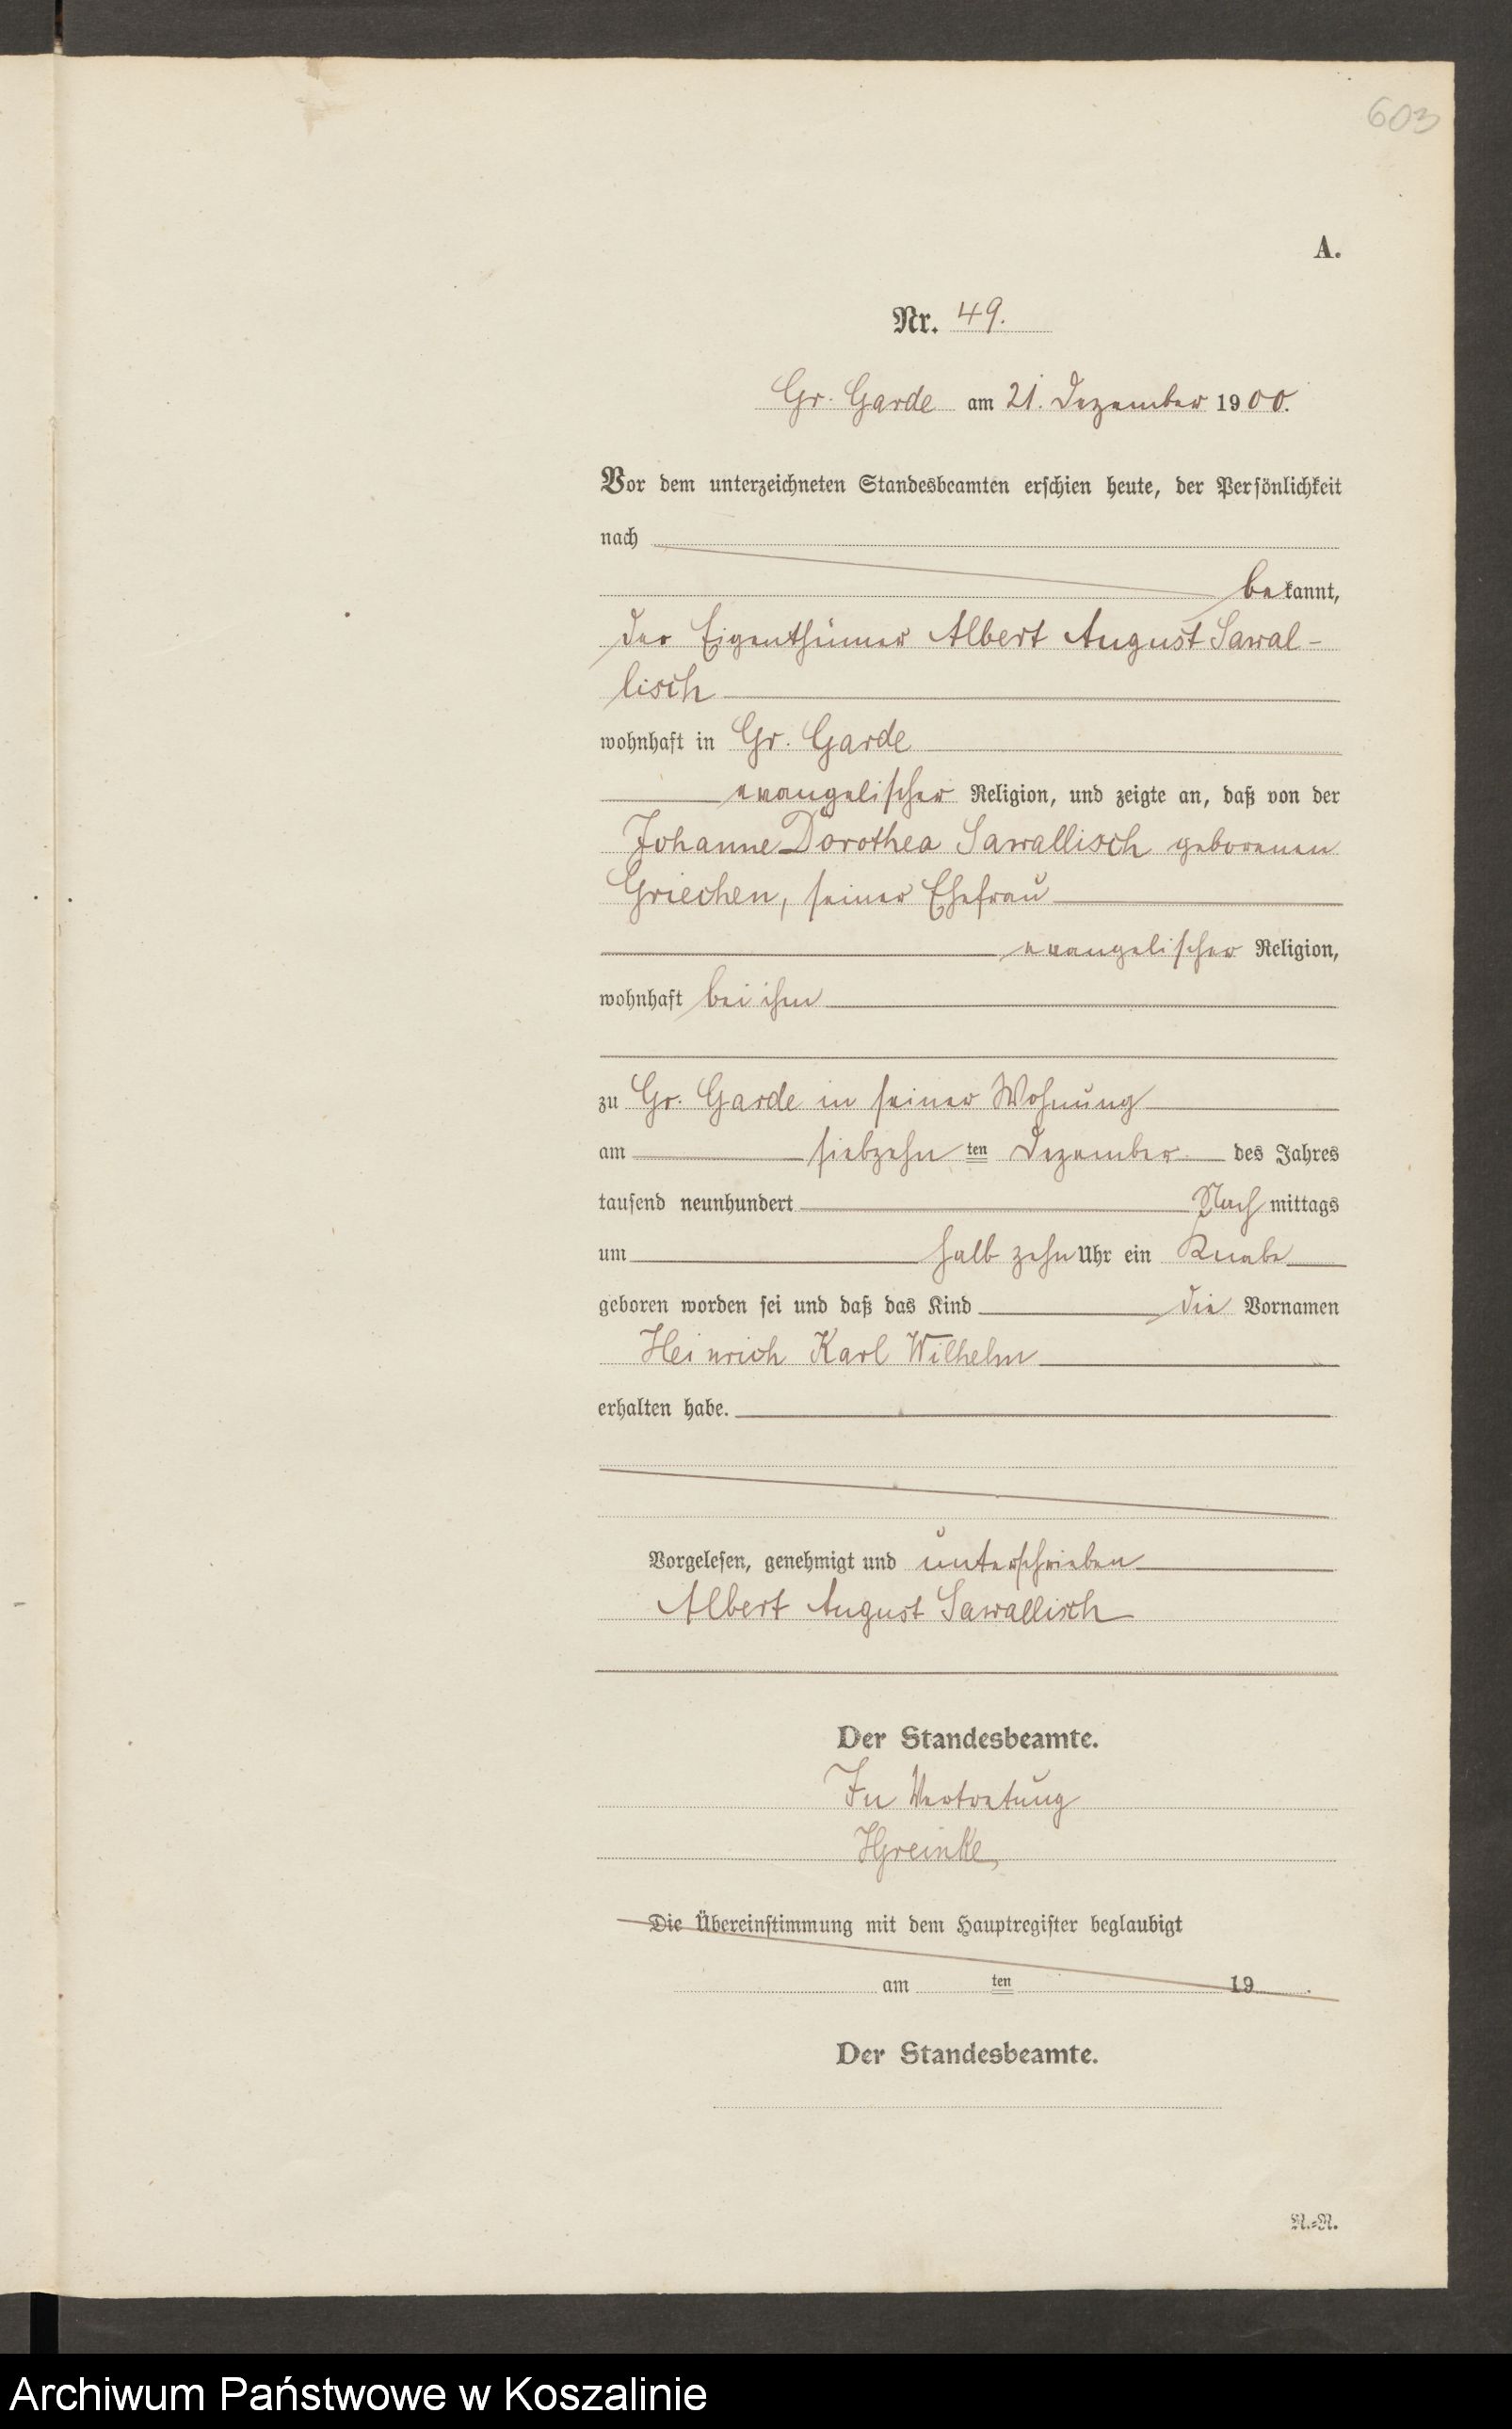 603
A.
Nr. 49.
Gr. Garde am 21. Dezember 1900.
Vor dem unterzeichneten Standesbeamten erschien heute, der Persönlichkeit
nach
bekannt,
der Eigenthümer Albert August Sawal-
lisch
wohnhaft in Gr. Garde
evangelischer Religion, und zeigte an, daß von der
Johanne Dorothea Sawallisch geborenen
Griechen, seiner Ehefrau
evangelischer Religion,
wohnhaft bei ihm
zu Gr. Garde in seiner Wohnung
am siebzehn ten Dezember des Jahres
tausend neunhundert Nach mittags
um halb zehn Uhr ein Knabe
geboren worden sei und daß das Kind die Vornamen
Heinrich Karl Wilhelm
erhalten habe.
Vorgelesen, genehmigt und unterschrieben
Albert August Sawallisch
Der Standesbeamte.
In Vertretung
HGreinke
Die Übereinstimmung mit dem Hauptregister beglaubigt
am ten 19 .
Der Standesbeamte.
R.=R.
Archiwum Państwowe w Koszalinie